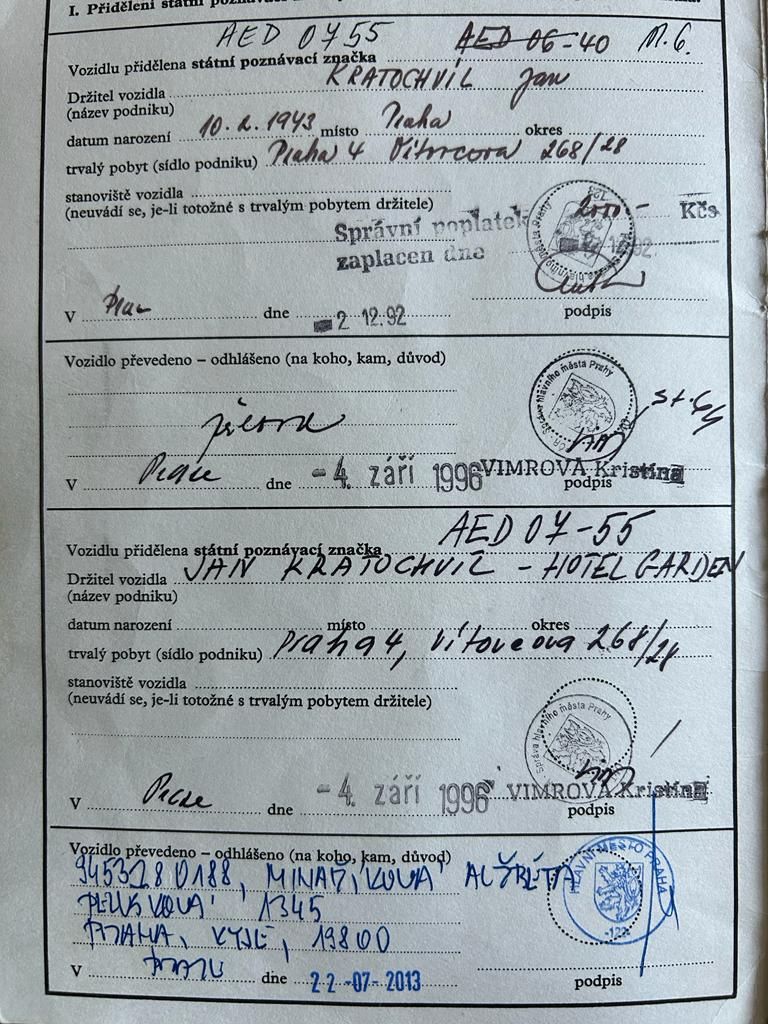 I. Přidělení státní
AED 0755 AED 06-40 M.G.
Vozidlu přidělena státní poznávací značka
KRATOCHVÍL Jan
Držitel vozidla
(název podniku)
datum narození 10.2.1943 místo Praha okres
trvalý pobyt (sídlo podniku) Praha 4 Vítovcova 268/28
stanoviště vozidla
(neuvádí se, je-li totožné s trvalým pobytem držitele)
Správní poplatek 2000- Kčs
zaplacen dne 12.92
V dne -2 12.92 podpis
Vozidlo převedeno – odhlášeno (na koho, kam, důvod)
Správa hlavního města Prahy
převod
V Praze dne -4. září 1996 VIMROVÁ Kristina
podpis
AED 07-55
Vozidlu přidělena státní poznávací značka
Držitel vozidla JAN KRATOCHVÍL - HOTEL GARDEN
(název podniku)
datum narození místo okres
trvalý pobyt (sídlo podniku) Praha 4, Vítovcova 268/28
stanoviště vozidla
(neuvádí se, je-li totožné s trvalým pobytem držitele)
Správa hlavního města Prahy
V Praze dne -4. září 1996 VIMROVÁ Kristina
podpis
Vozidlo převedeno – odhlášeno (na koho, kam, důvod)
9453280188, MINAŘÍKOVÁ ALŽBĚTA
1345
PRAHA, KYJE, 19800
HLAVNÍ MĚSTO PRAHA
-122-
V dne 22-07-2013 podpis